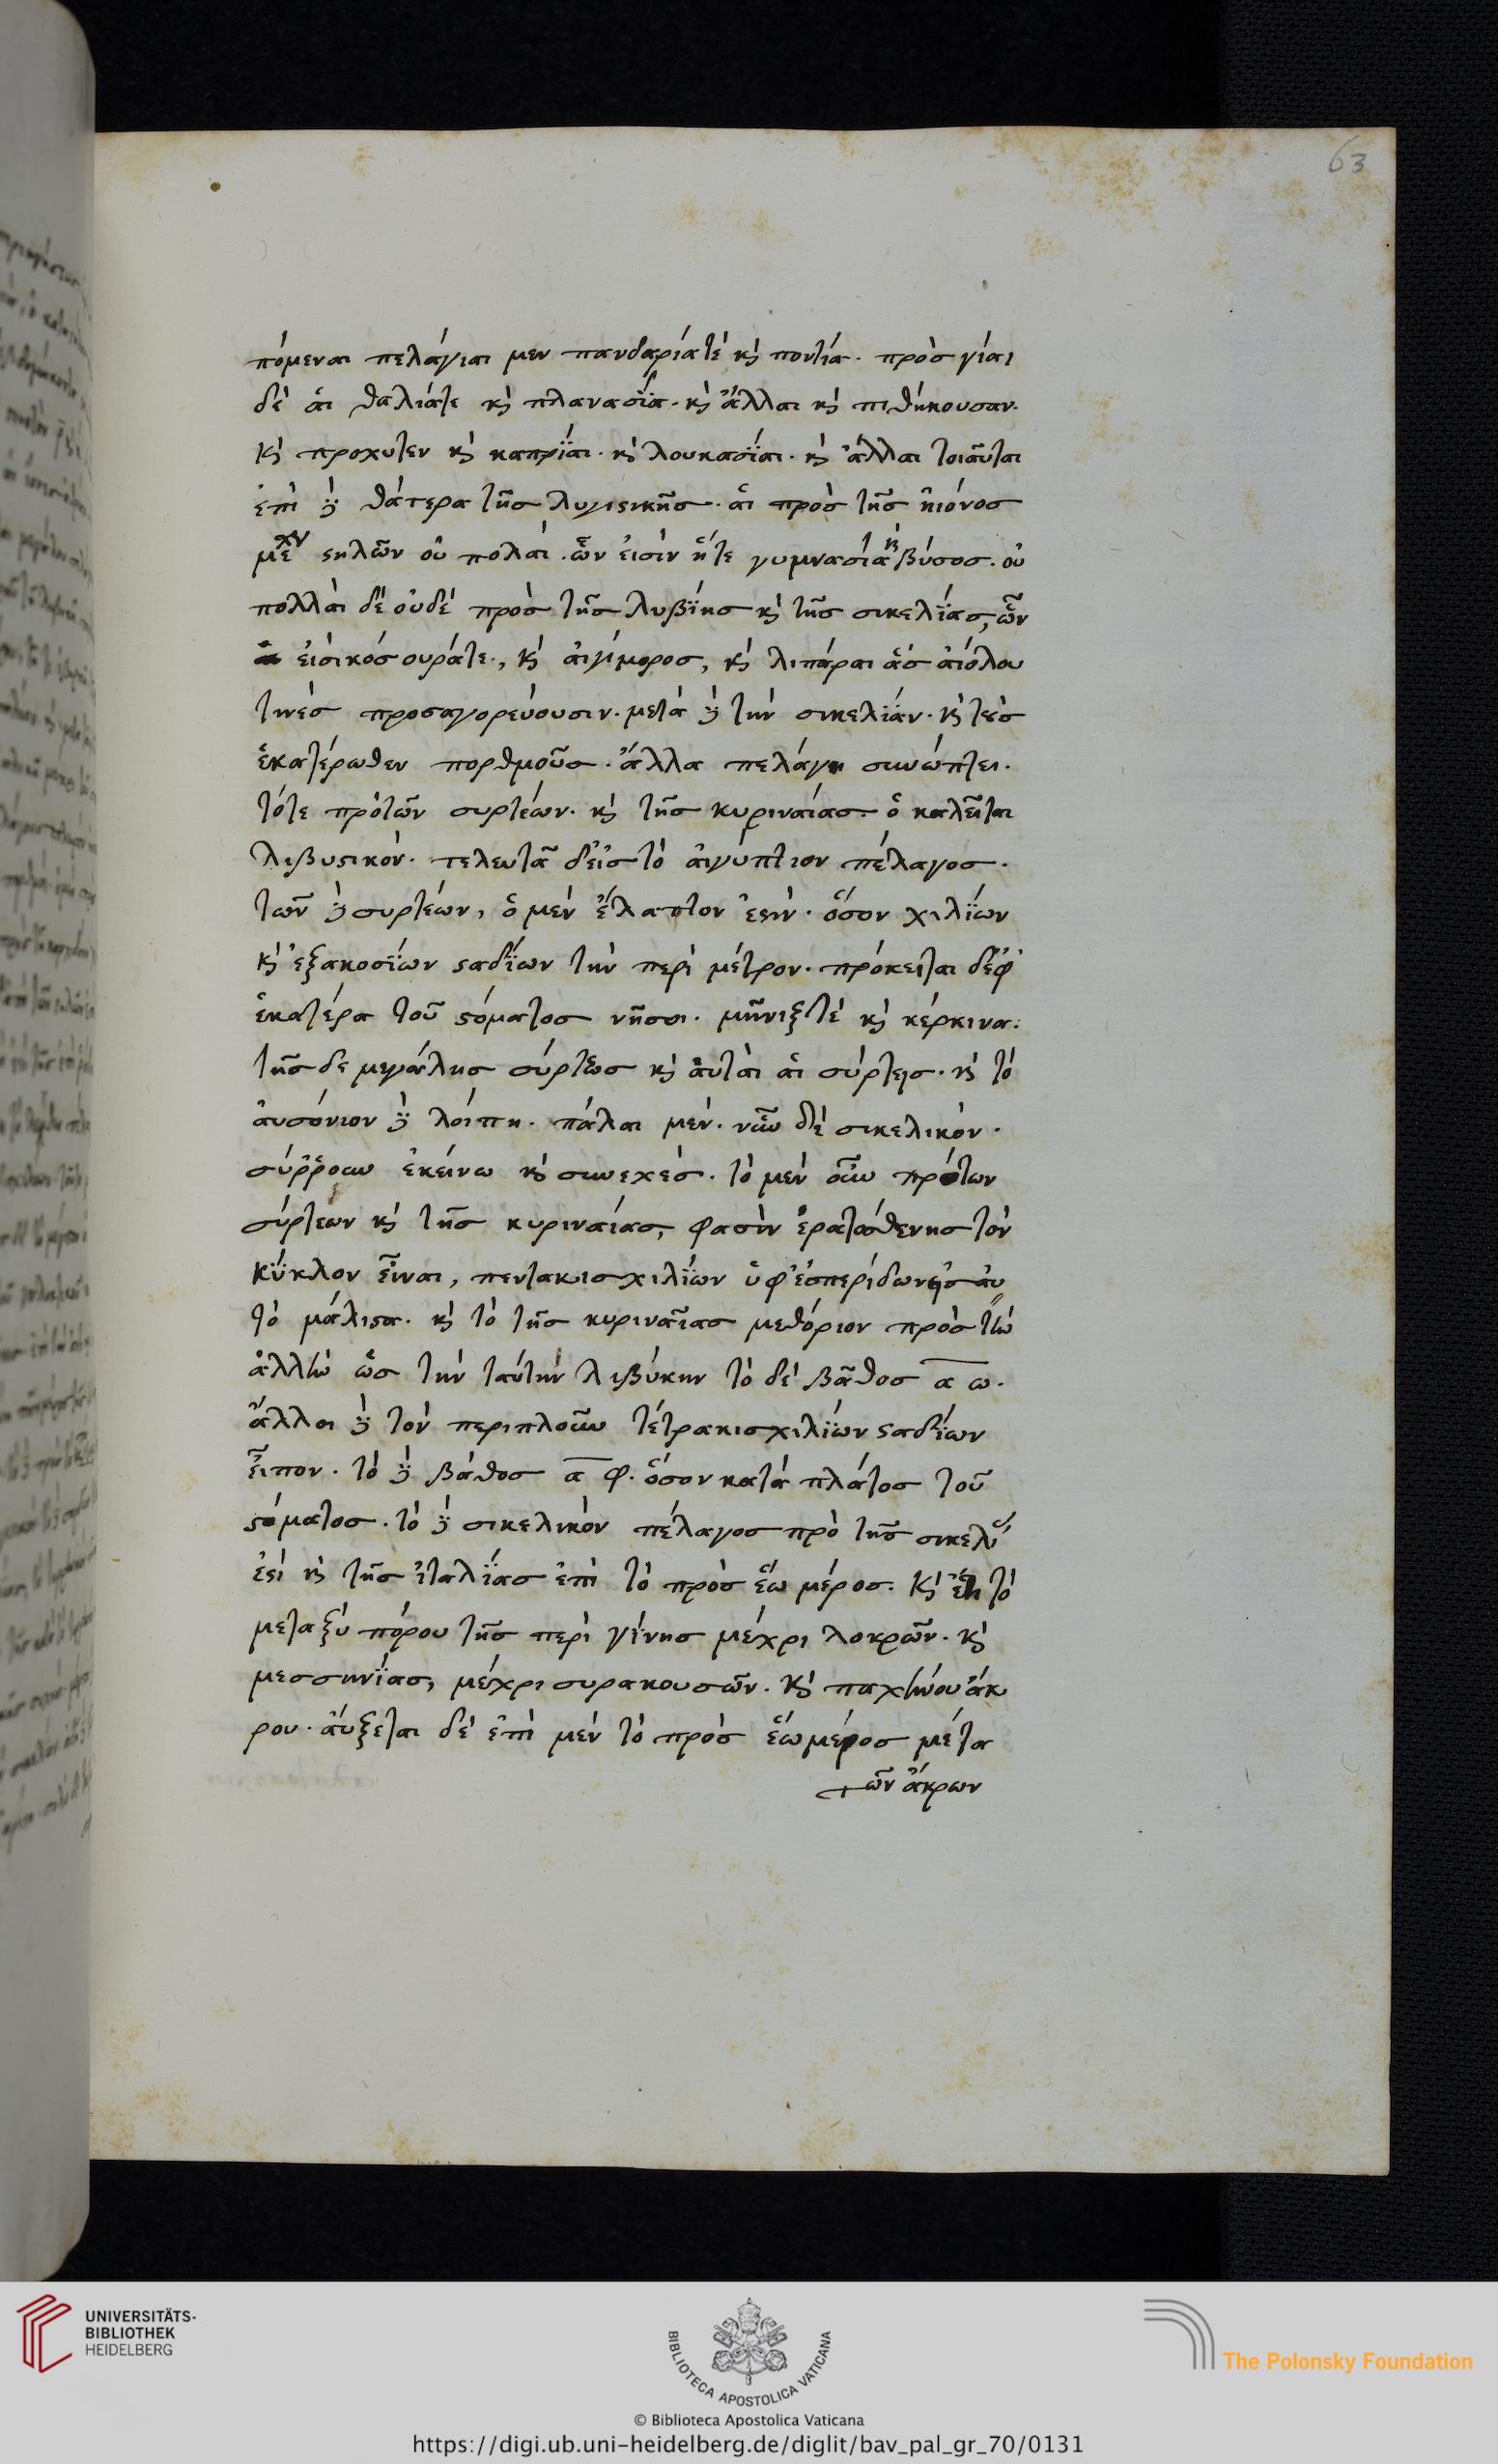 63
πόμεναι πελάγιαι μεν πανδαρίατέ κỳ ποντία. πρόσ γίαι
δὲ ἁι θαλιάτε κỳ πλανασΐα. κỳ ἄλλαι κỳ πιθήκουσαν.
κỳ προχυτεν κỳ καπρΐαι. κỳ λουκασΐαι. κỳ ἄλλαι τοιαῦται
ἐπὶ δὲ θάτερα τῆσ λυγιϛικῆσ. ἁι πρὸσ τῆσ ἠιόνοσ
μέχν ϛηλῶν οὐ πολαί. ὧν ἐισίν ἥτε γυμνασία κỳ βύσοσ. οὐ
πολλὰι δὲ οὐδὲ πρὸσ τῆσ λυβΐησ κỳ τῆσ σικελΐασ, ὧν
ἐισὶ κόσουράτε., κỳ ἀιγίμοροσ, κỳ λιπάραι ἃσ ἀιόλου
τινὲσ προσαγορεύουσιν. μετὰ δὲ τὴν σικελΐαν. κỳ τοὺσ
ἑκατέρωθεν πορθμοῦσ. ἄλλα πελάγη συνώπτει.
τότε πρὸτῶν συρτέων. κỳ τῆσ κυριναίασ. ὃ καλεῖται
λιβυϛικὸν. τελευτᾶ δἐισ τὸ ἀιγύπτιον πέλαγοσ.
τῶν δὲ συρτέων, ὁ μὲν ἔλαττον ἐϛιν. ὅσον χιλΐων
κỳ ἑξακοσΐων ϛαδΐων τὴν περὶ μέτρον. πρόκειται δὲφ
ἑκατέρα τοῦ ϛόματοσ νῆσοι. μῆνιξτὲ κỳ κέρκινα:
τῆσ δε μεγάλησ σύρτεωσ κỳ ἀυτὰι ἁι σύρτεισ. κỳ τὸ
ἀυσόνιον δὲ λοίπη. πάλαι μὲν. νῦν δὲ σικελικόν.
σύρῥουν ἐκείνω κỳ συνεχὲσ. τὸ μὲν οὖν πρότων
σύρτεων κỳ τῆσ κυριναίασ, φασὶν ἐρατοσθενησ τὸν
κΰκλον εἶναι, πεντακισχιλΐων ὑφ' ἑσπερίδων εἰσ αυ
τὸ μάλιϛα. κỳ τὸ τῆσ κυριναῖασ μεθόριον πρὸσ τὴν
ἄλλην ὡσ τὴν ταύτην λιβύκην τὸ δὲ βᾶθοσ α ω.
ἄλλοι δὲ τὸν περιπλοῦν τέτρακισχιλΐων ϛαδΐων
εἶπον. τὸ δὲ βάθοσ α φ. ὅσον κατὰ πλάτοσ τοῦ
ϛόματοσ. τὸ δὲ σικελικὸν πέλαγοσ πρὸ τῆσ σικελί
ἐϛι κỳ τῆσ ἰταλΐασ ἐπὶ τὸ πρὸσ ἕω μέροσ. κỳ ἔτι τὸ
μεταξὺ πόρου τῆσ περὶ γίνησ μέχρι λοκρῶν. κỳ
μεσσηνΐασ, μέχρι συρακουσῶν. κỳ παχήνου ἄκ
ρου. ἀύξεται δὲ ἐπὶ μὲν τὸ πρὸσ ἕω μέροσ μέτα
τῶν ἄκρων
UNIVERSITÄTS-
BIBLIOTHEK
HEIDELBERG
BIBLIOTECA APOSTOLICA VATICANA
The Polonsky Foundation
© Biblioteca Apostolica Vaticana
https://digi.ub.uni-heidelberg.de/diglit/bav_pal_gr_70/0131